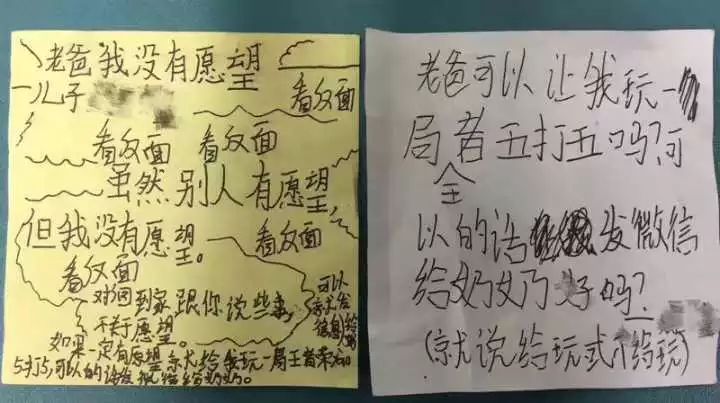 老爸我没有愿望
一儿子
看反面
看反面 看反面
虽然别人有愿望
但我没有愿望。
看反面
看反面
对回到家跟你说些事,
不关于愿望。
可以
就发
信息给
如果一定有愿望就给我玩一局王者荣
5打5,可以的话发微信给奶奶。
老爸可以让我玩一
局者五打五吗?可
全
以的话发微信
给奶奶好吗?
(就说给玩或不给玩)